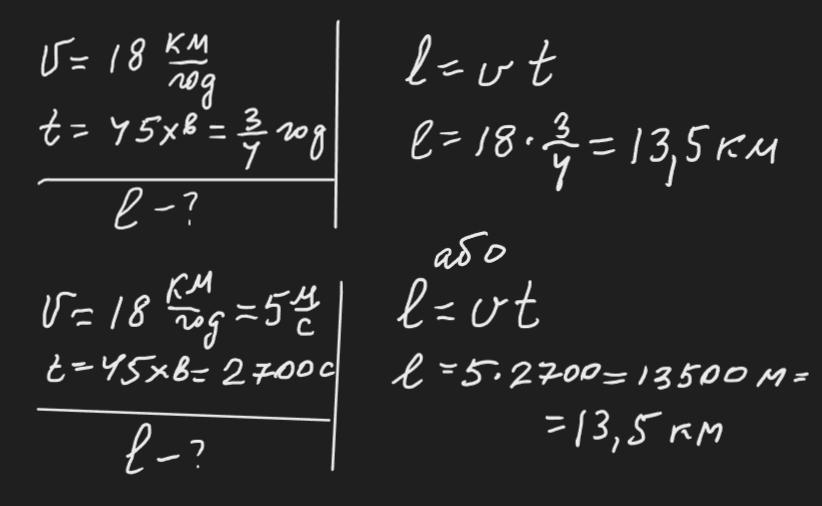 v = 18 км/год
t = 45 хв = 3/4 год
l - ?
l = v t
l = 18 · 3/4 = 13,5 км
або
v = 18 км/год = 5 м/с
t = 45 хв = 2700 с
l - ?
l = v t
l = 5 · 2700 = 13500 м =
= 13,5 км